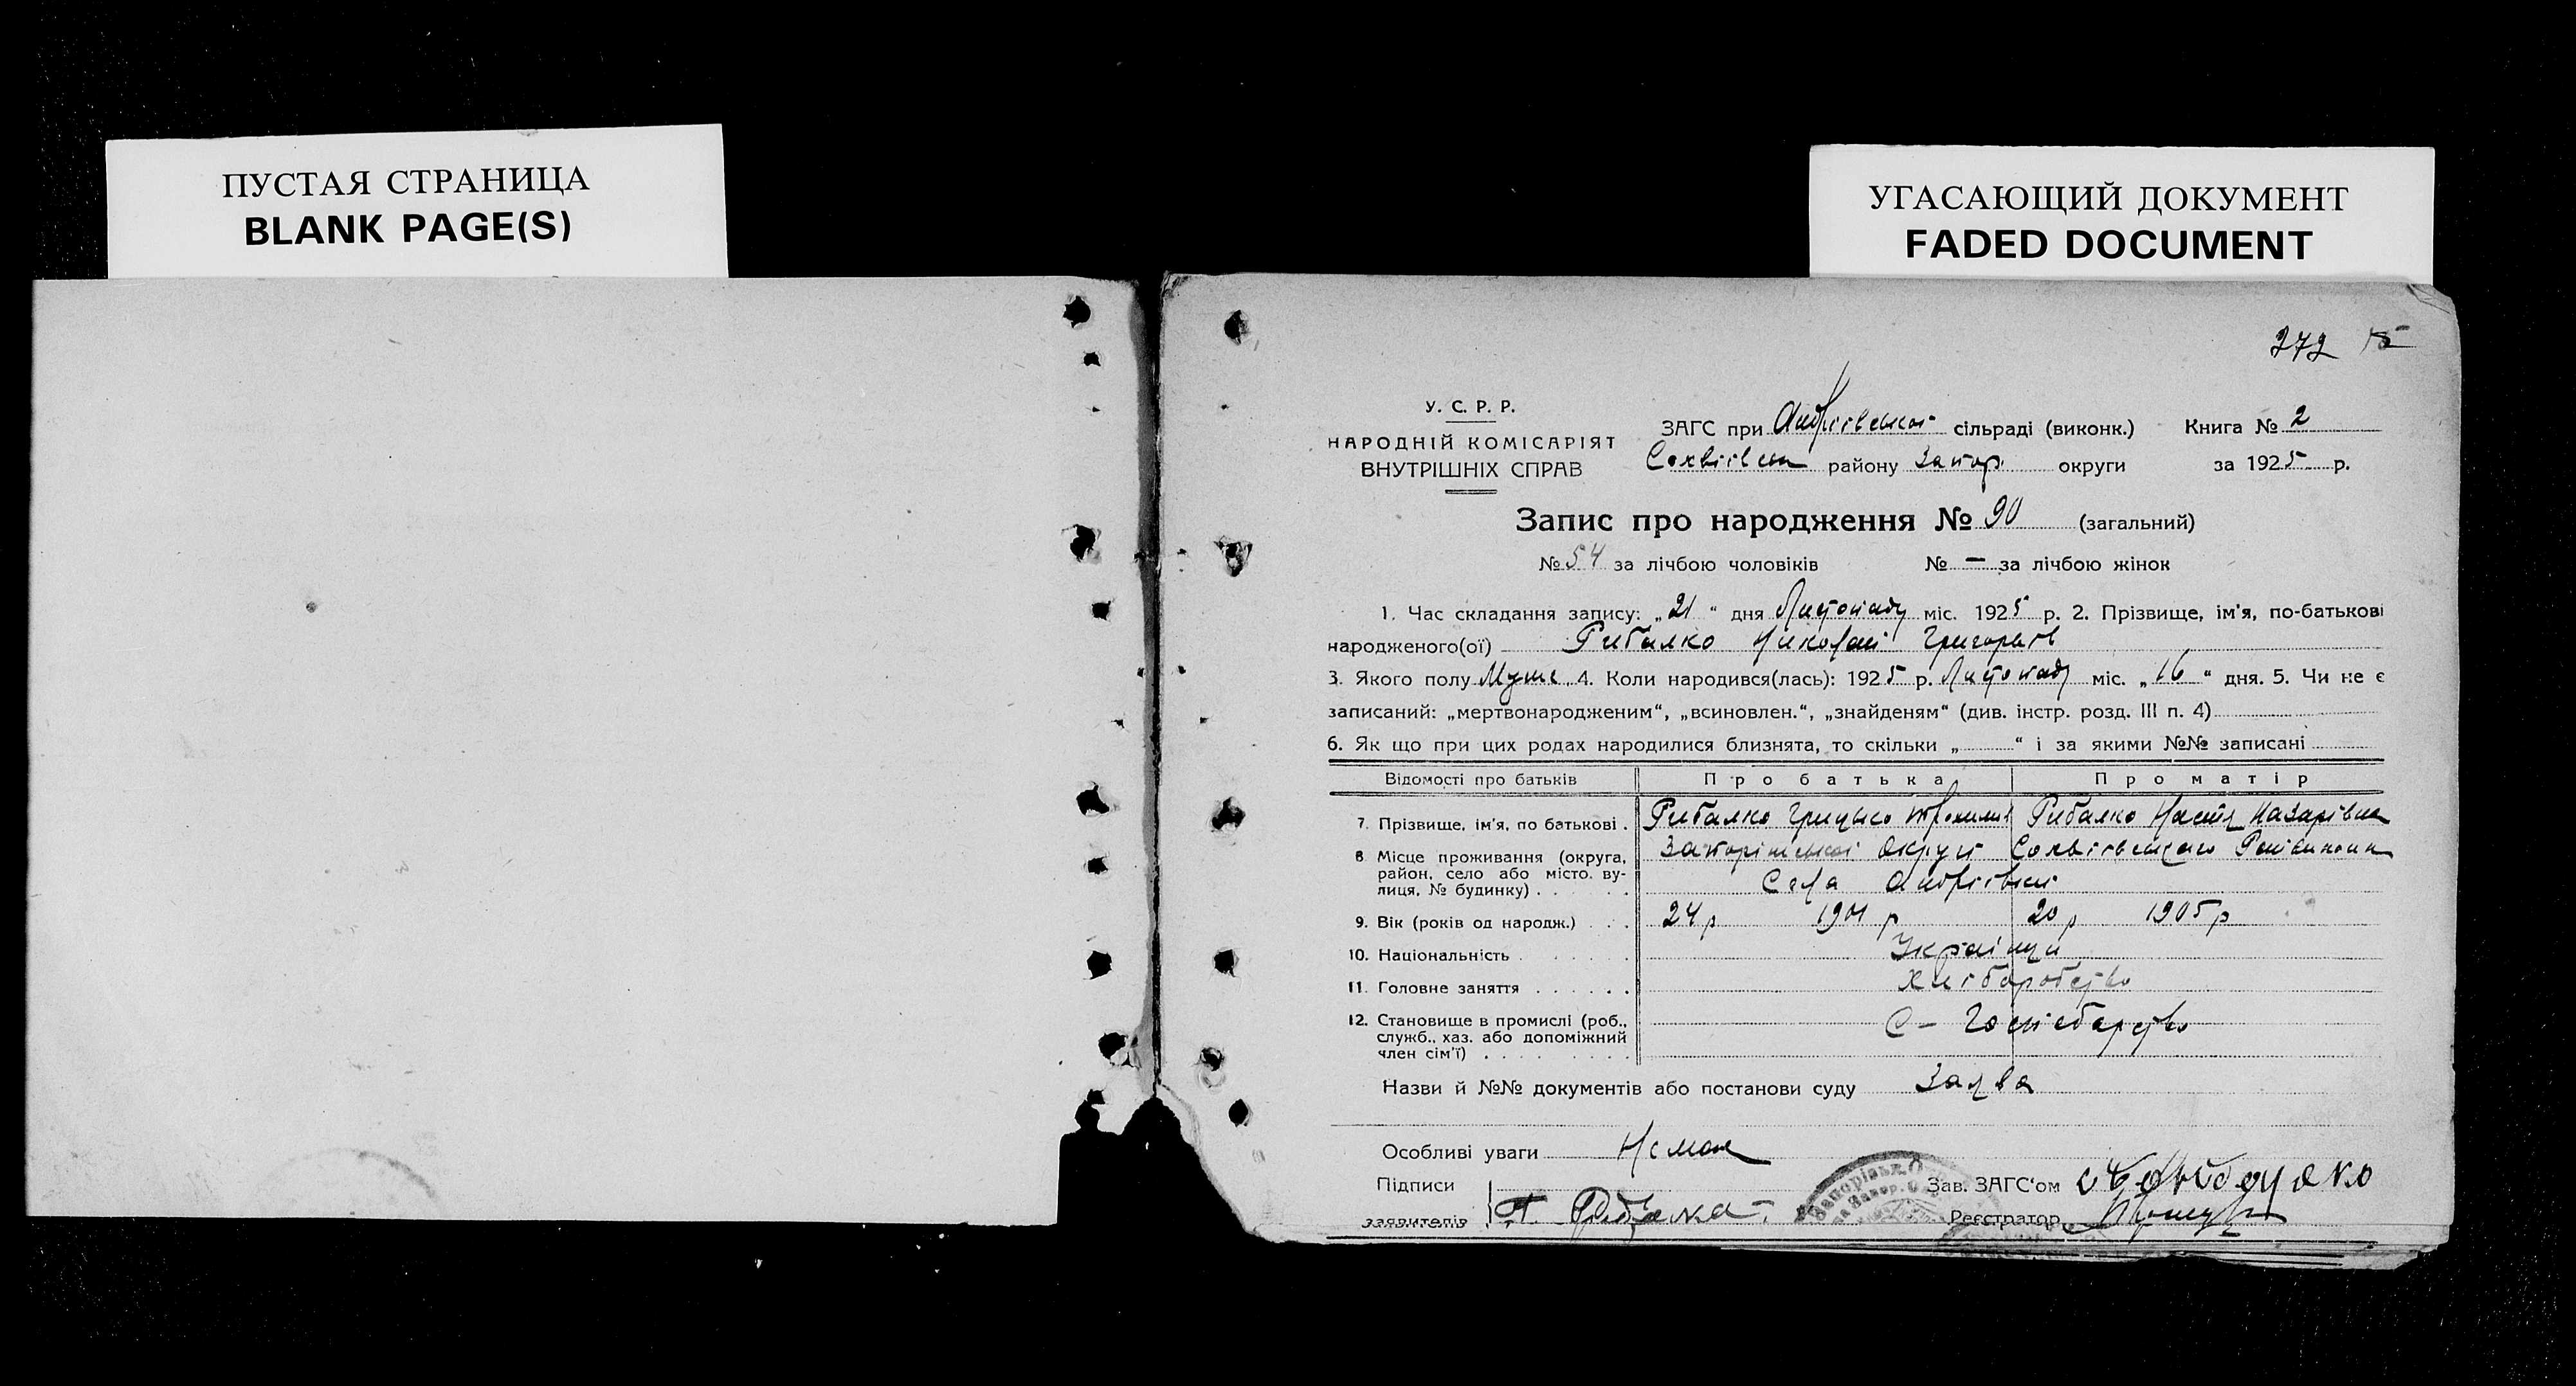 ПУСТАЯ СТРАНИЦА
BLANK PAGE(S)
УГАСАЮЩИЙ ДОКУМЕНТ
FADED DOCUMENT
272
У. С. Р. Р.
НАРОДНІЙ КОМІСАРІЯТ
ВНУТРІШНІХ СПРАВ
ЗАГС при Андріївської сільраді (виконк.) Книга № 2
району Запор. округи за 1925 р.
Запис про народження № 90 (загальний)
№ 54 за лічбою чоловіків № — за лічбою жінок
1. Час складання запису: „21“ дня Листопаду міс. 1925 р. 2. Прізвище, ім'я, по-батькові
народженого(ої) Рибалко Николай Григорьев
3. Якого полу Муж. 4. Коли народився(лась): 1925 р. Листопаду міс. „16“ дня. 5. Чи не є
записаний: „мертвонародженим“, „всиновлен.“, „знайденям“ (див. інстр. розд. III п. 4)
6. Як що при цих родах народилися близнята, то скільки „ “ і за якими №№ записані
Відомості про батьків Про батька Про матір
7. Прізвище, ім'я, по батькові . Рибалко Грицько Рибалко Настя Назарівна
8 Місце проживання (округа, район, село або місто, вулиця, № будинку) . Запоріжської Округи
Села Андріївки
9. Вік (років од народж.) . . . 24 р 1901 р 20 р 1905 р
10. Національність . Українці
11. Головне заняття . Хліборобство
12. Становище в промислі (роб., служб., хаз. або допоміжний член сім'ї) . С-Господарство
Назви й №№ документів або постанови суду Заява
Особливі уваги Немає
Підписи
заявителів Г. Рибалка
Зав. ЗАГС'ом
Реєстратор